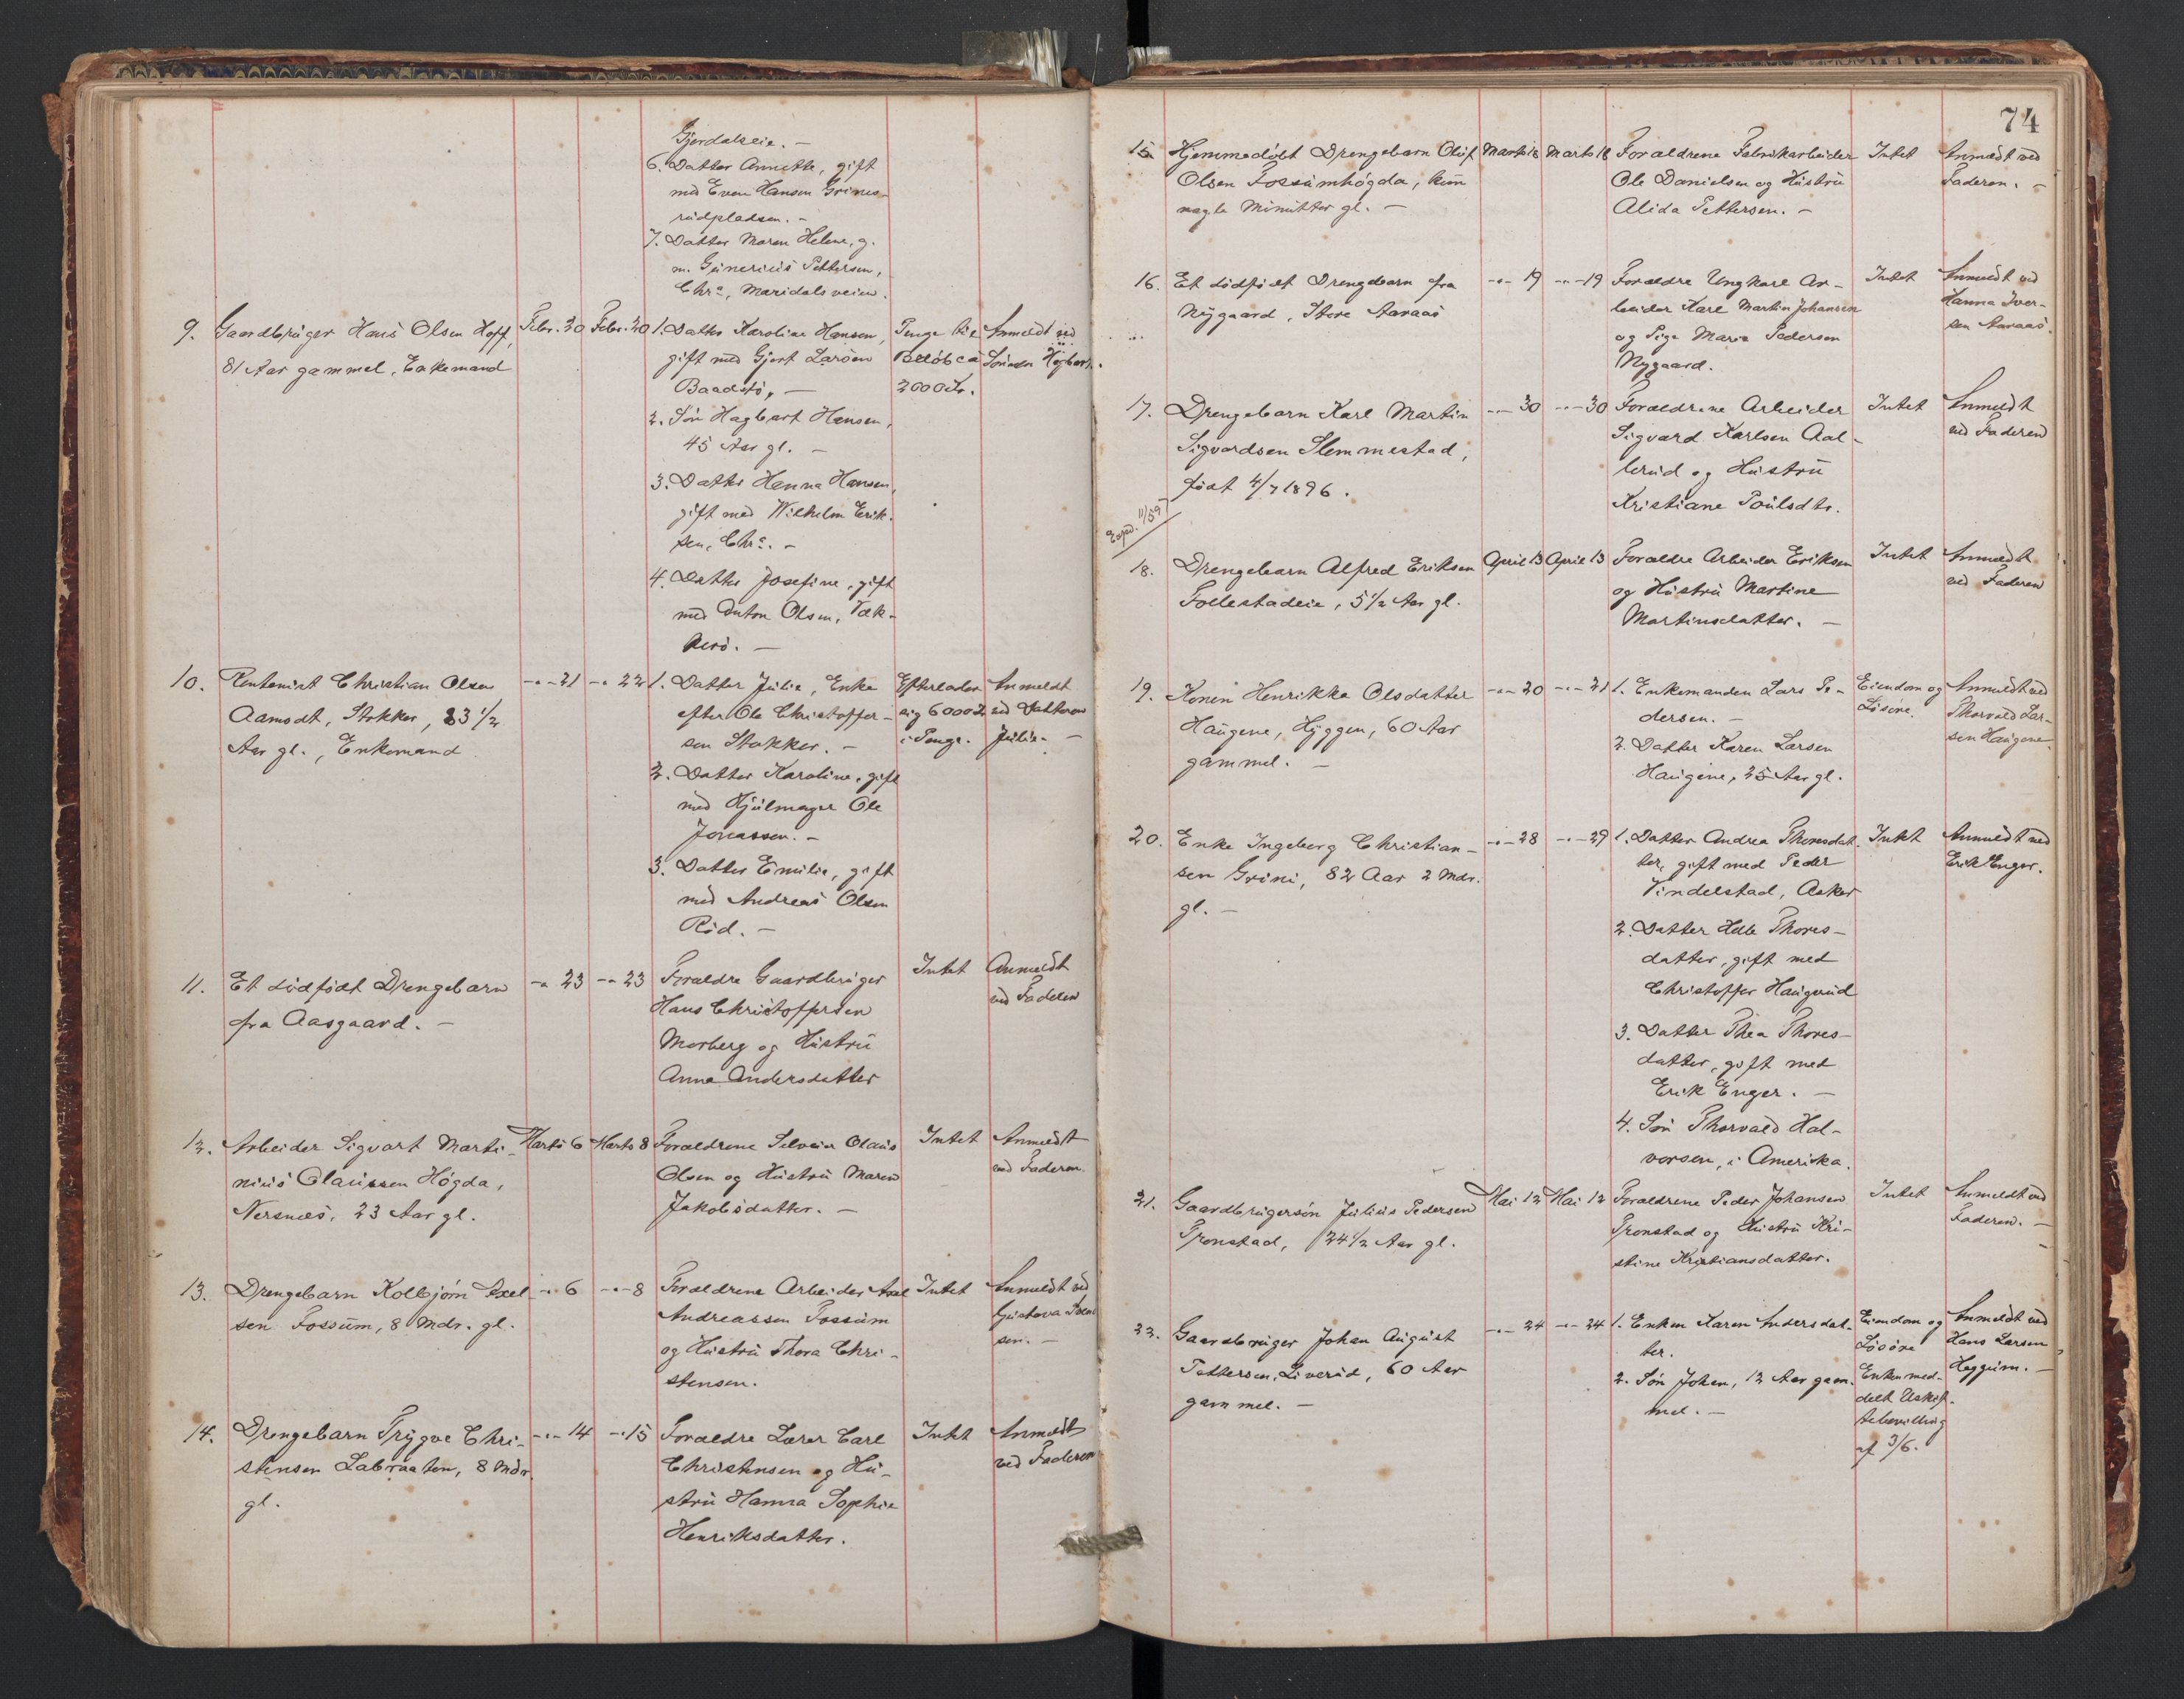 Gjerdalseie. –
6. Datter Annette, gift
med Even Hansen Grines-
rudpladsen. –
7. Datter Maren Helene, g.
m. Gunerius Pettersen,
Chra, Maridalsveien.
9. Gaardbruger Hans Olsen Hoff,
81 Aar gammel, Enkemand
Febr. 20
Febr. 20
1. Datter Karoline Hansen,
gift med Gjert Larsen
Baadstø, –
2. Søn Hagbart Hansen,
45 Aar gl. –
3. Datter Hanna Hansen,
gift med Wilhelm Erik-
sen, Chra. –
4. Datter Josefine, gift
med Anton Olsen, Væk-
kerø. –
Penge til
Beløb ca
2000 Kr.
Anmeldt ved
Sønnen Hagbart.
10. Rentenist Christian Olsen
Aamodt, Stokker, 83 1/2
Aar gl., Enkemand
-"- 21
-"- 22
1. Datter Julie, Enke
efter Ole Christoffer-
sen Stokker. –
2. Datter Karoline, gift
med Hjulmager Ole
Jonassen. –
3. Datter Emilie, gift
med Andreas Olsen
Rød. –
Efterlader
sig 6000 Kr
i Penge.
Anmeldt
ved Datteren
Julie. –
11. Et dødfødt Drengebarn
fra Aasgaard. –
-"- 23
-"- 23
Forældre Gaardbruger
Hans Christoffersen
Morberg og Hustru
Anna Andersdatter
Intet
Anmeldt
ved Faderen
12. Arbeider Sigvart Marti-
nius Olaussen Høgda,
Nersnes, 23 Aar gl.
Marts 6
Marts 8
Forældrene Selveier Olaus
Olsen og Hustru Maren
Jakobsdatter. –
Intet
Anmeldt
ved Faderen.
13. Drengebarn Kolbjørn Axel-
sen Fossum, 8 Mdr. gl.
-"- 6
-"- 8
Forældrene Arbeider Axel
Andreassen Fossum
og Hustru Thora Chri-
stensen.
Intet
Anmeldt ved
Gustava
sen. –
14. Drengebarn Trygve Chri-
stensen Labraaten, 8 Mdr.
gl.
-"- 14
-"- 15
Forældre Lærer Carl
Christensen og Hu-
stru Hanna Sophie
Henriksdatter.
Intet
Anmeldt
ved Faderen
74
15. Hjemmedøbt Drengebarn Oluf
Olsen Fossumhøgda, kun
nogle Minutter gl. –
Marts 18
Marts 18
Forældrene Fabrikarbeider
Ole Danielsen og Hustru
Alida Pettersen. –
Intet
Anmeldt ved
Faderen. –
16. Et dødfødt Drengebarn fra
Nygaard, Store Aaraas
-"- 19
-"- 19
Forældre Ungkarl Ar-
beider Karl Martin Johansen
og Pige Maria Pedersen
Nygaard.
Intet
Anmeldt ved
Hanna Iver-
sen Aaraas.
17. Drengebarn Karl Martin
Sigvardsen Slemmestad,
født 4/7 1896.
-"- 30
-"- 30
Forældrene Arbeider
Sigvard Karlsen Aal-
lerud og Hustru
Kristiane Poulsdtr.
Intet
Anmeldt
ved Faderen
Exped. 11/5 97
18. Drengebarn Alfred Eriksen
Follestadeie, 5 1/2 Aar gl.
April 13
April 13
Forældre Arbeider Eriksen
og Hustru Martine
Martinsdatter. –
Intet
Anmeldt
ved Faderen
19. Konen Henrikke Olsdatter
Haugene, Hyggen, 60 Aar
gammel. –
-"- 20
-"- 21
1. Enkemanden Lars Pe-
dersen. –
2. Datter Karen Larsen
Haugene, 25 Aar gl.
Eiendom og
Løsøre.
Anmeldt ved
Thorvald Lar-
sen Haugene.
20. Enke Ingeborg Christian-
sen Grini, 82 Aar 2 Mdr.
gl. –
-"- 28
-"- 29
1. Datter Andrea Thoresdat-
ter, gift med Peder
Vindelstad, Asker
2. Datter Helle Thores-
datter, gift med
Christoffer Haugerud
3. Datter Thea Thores-
datter, gift med
Erik Enger. –
4. Søn Thorvald Hal-
vorsen, i Amerika.
Intet
Anmeldt ved
Erik Enger.
21. Gaardbrugersøn Julius Pedersen
Tronstad, 24 1/2 Aar gl.
Mai 12
Mai 12
Forældrene Peder Johansen
Tronstad og Hustru Kri-
stine Kristiansdatter.
Intet
Anmeldt ved
Faderen. –
22. Gaardbruger Johan August
Pettersen, Liverud, 60 Aar
gammel. –
-"- 24
-"- 24
1. Enken Karen Andersdat-
ter.
2. Søn Johan, 12 Aar gam-
mel. –
Eiendom og
Løsøre
Enken med-
delt Uskif-
tebevilling
af 3/6.
Anmeldt ved
Hans Larsen
Heggum. –